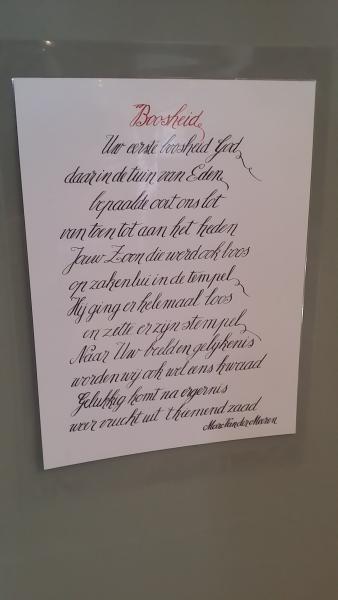 Boosheid
Uw eerste boosheid God
daar in de tuin van Eden
bepaalde ooit ons lot
van toen tot aan het heden
Jouw Zoon die werd ook boos
op zakenlui in de tempel
Hij ging er helemaal loos
en zette er zijn stempel
Naar Uw beeld en gelijkenis
worden wij ook wel eens kwaad
Gelukkig komt na ergernis
weer vrucht uit 't kiemend zaad
Marc Van der Meeren